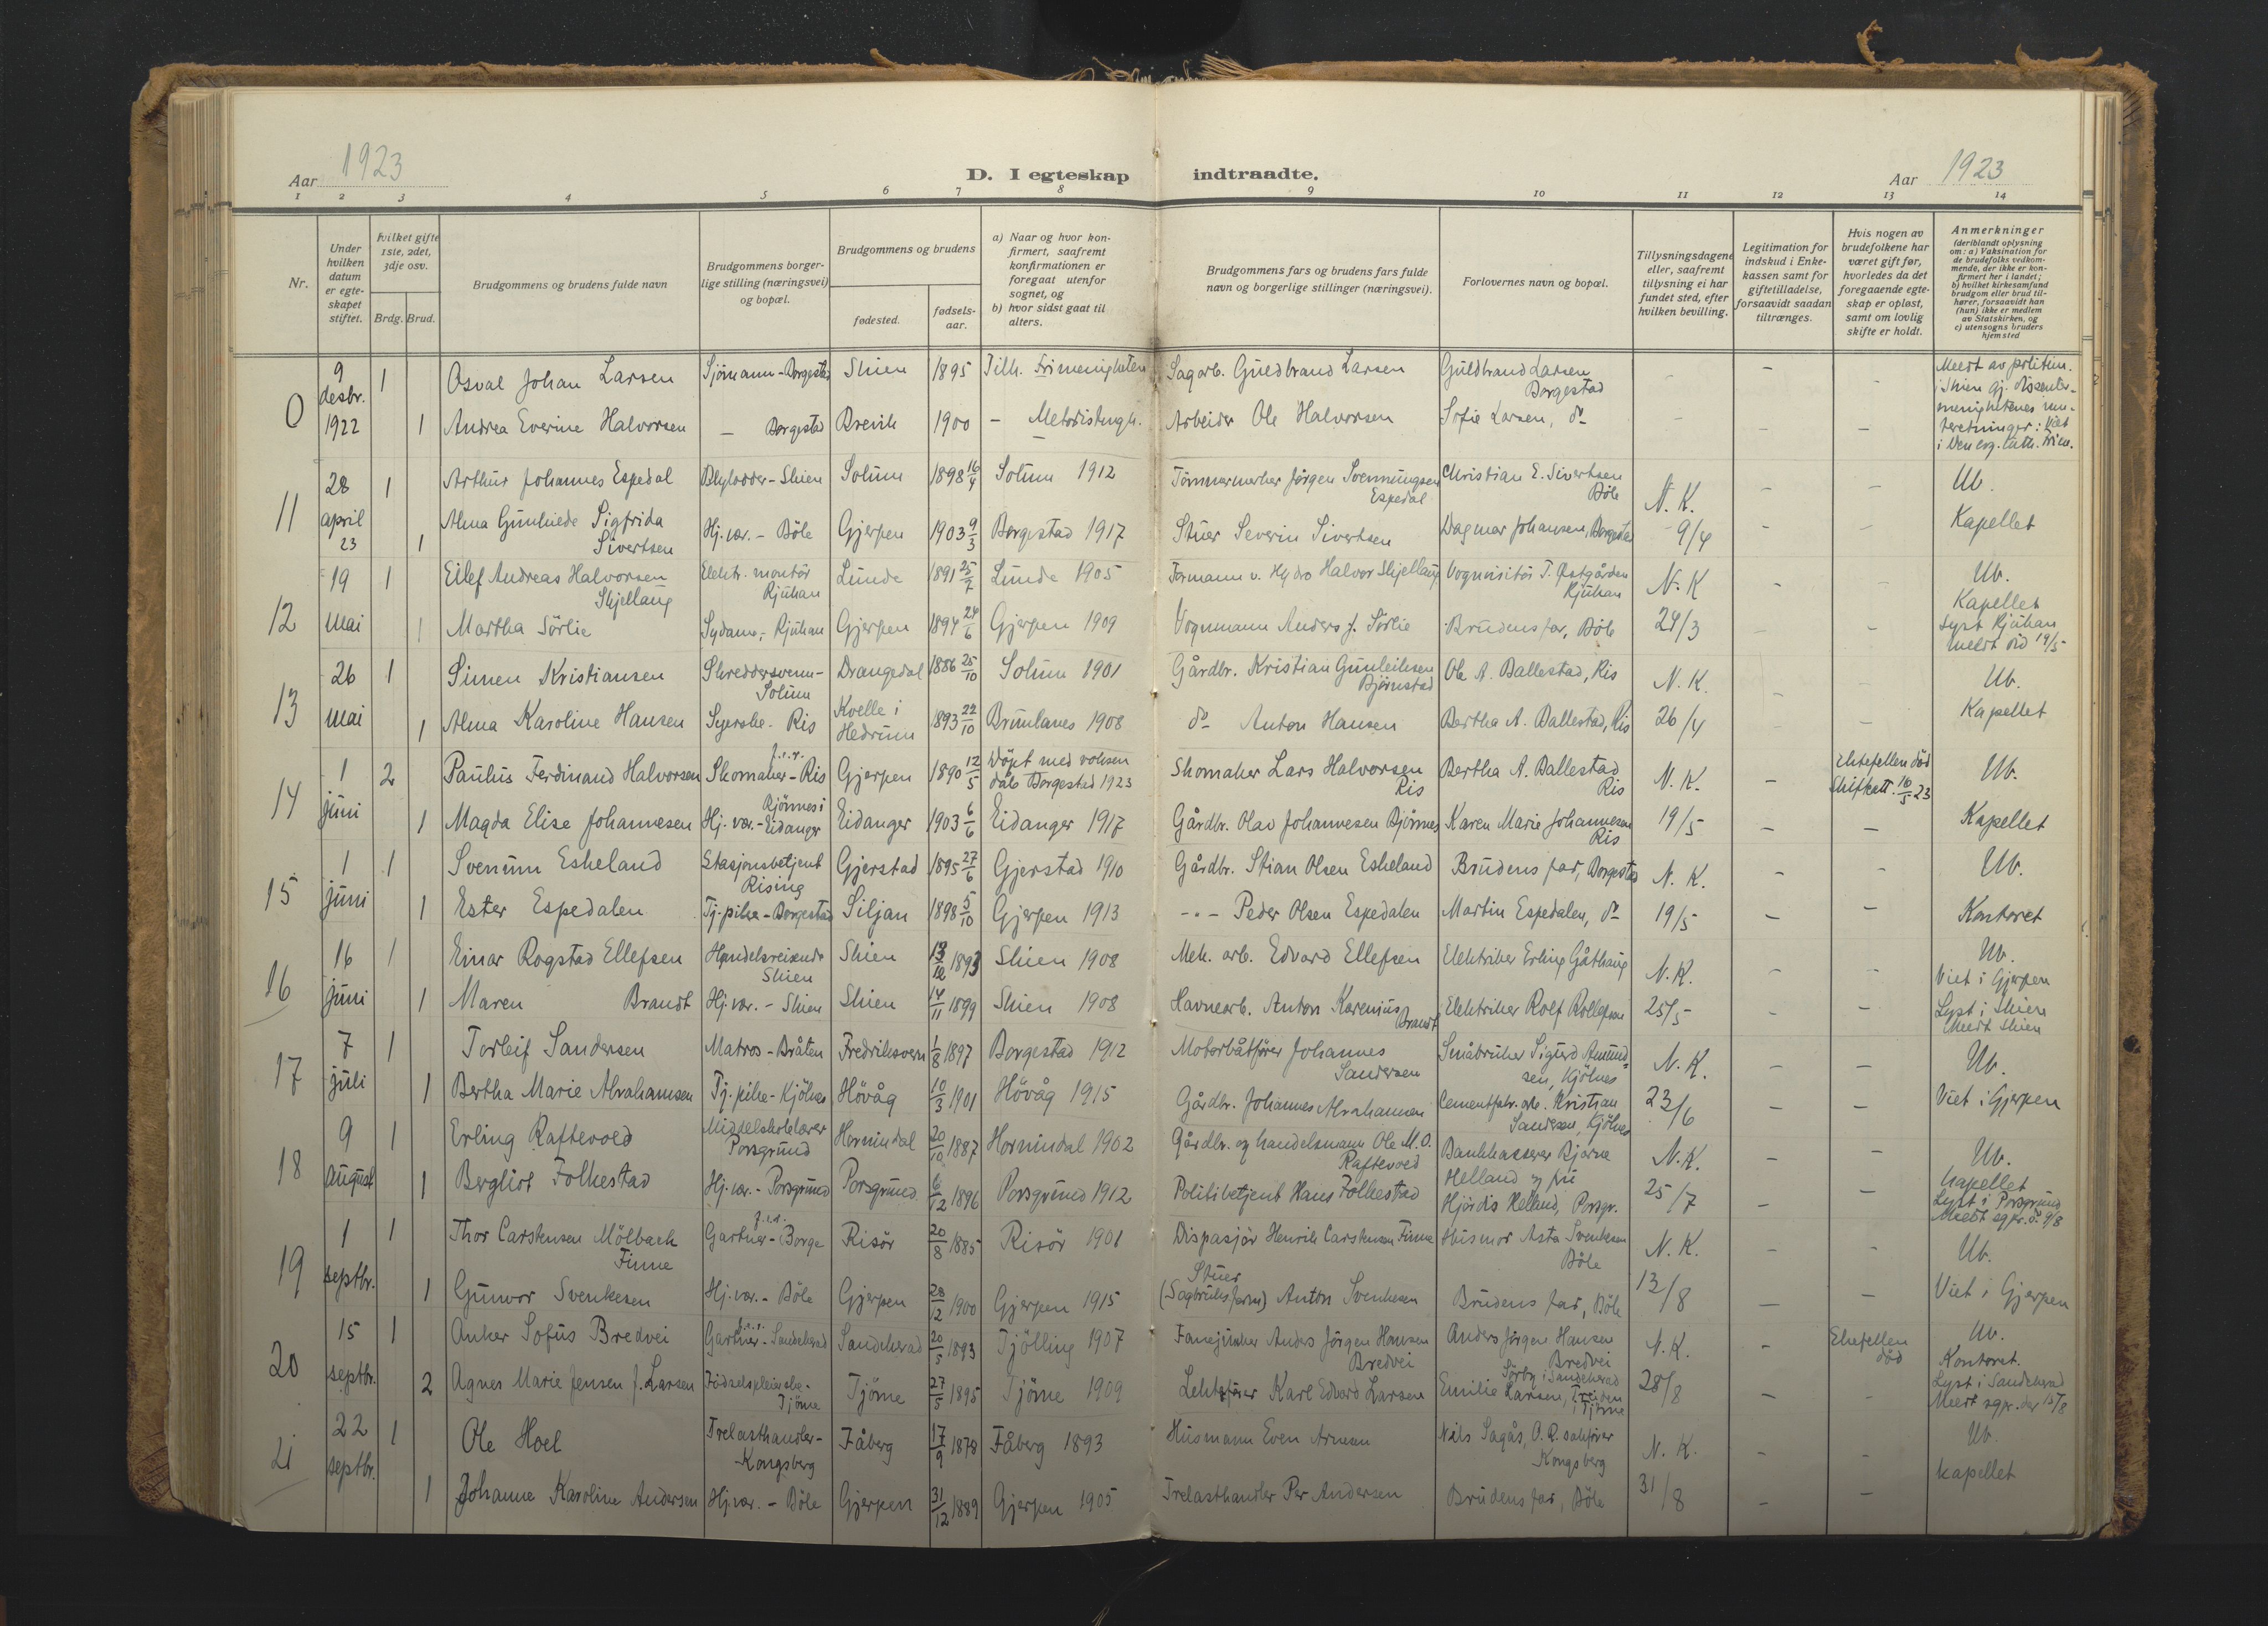 Aar 1923
D. I egteskap indtraadte.
Aar 1923
1 2 3 4 5 6 7 8 9 10 11 12 13 14
Nr.
Under hvilken datum er egteskapet stiftet.
Hvilket gifte 1ste, 2det, 3dje osv.
Brdg. Brud.
Brudgommens og brudens fulde navn
Brudgommens borgerlige stilling (næringsvei) og bopæl.
Brudgommens og brudens
fødested.
fødselsaar.
a) Naar og hvor konfirmert, saafremt konfirmationen er foregaat utenfor sognet, og
b) hvor sidst gaat til alters.
Brudgommens fars og brudens fars fulde navn og borgerlige stillinger (næringsvei).
Forlovernes navn og bopæl.
Tillysningsdagene eller, saafremt tillysning ei har fundet sted, efter hvilken bevilling.
Legitimation for indskud i Enkekassen samt for giftetilladelse, forsaavidt saadan tiltrænges.
Hvis nogen av brudefolkene har været gift før, hvorledes da det foregaaende egteskap er opløst, samt om lovlig skifte er holdt.
Anmerkninger (deriblandt oplysning om: a) Vaksination for de brudefolks vedkommende, der ikke er konfirmert her i landet; b) hvilket kirkesamfund brudgom eller brud tilhører, forsaavidt han (hun) ikke er medlem av Statskirken, og c) utensogns bruders hjemsted
0 9 desbr. 1922 1 Osval Johan Larsen Sjömann - Borgestad Skien 1895 Tilh. Frimenigheten Sagarb. Guldbrand Larsen Guldbrand Larsen Borgestad - - - Meldt av politim. i Skien gj. dissentermenighetenes
1 Andrea Everine Halvorsen - Borgestad Brevik 1900 - Metodistmgh. Arbeider Ole Halvorsen Sofie Larsen, do - - - Viet i Den ev. luth. Frim.
11 28 april 23 1 Arthur Johannes Espedal Blylodder - Skien Solum 1898 16/4 Solum 1912 Tömmermerker Jörgen Svennungsen Espedal Christian E. Sivertsen Böle N. K. - - Ub.
1 Alma Gunhilde Sigfrida Sivertsen Hj. vær. - Böle Gjerpen 1903 9/3 Borgestad 1917 Stuer Severin Sivertsen Dagmar Johansen, Borgestad 9/4 - - Kapellet
12 19 mai 1 Eilef Andreas Halvorsen Skjellaug Elektr. montör Rjukan Lunde 1891 25/7 Lunde 1905 Formann v. Hydro Halvor Skjellaug Vognvisitör T. Østgården Rjukan N. K - - Ub.
1 Martha Sörlie Sydame, - Rjukan Gjerpen 1894 24/6 Gjerpen 1909 Vognmann Anders J. Sörlie Brudens far, Böle 24/3 - - Kapellet Lyst Rjukan meldt did 19/5
13 26 mai 1 Simen Kristiansen Skreddersvenn - Solum Drangedal 1886 25/10 Solum 1901 Gårdbr. Kristian Gunleiksen Bjørnstad Ole A. Ballestad, Ris N. K. - - Ub.
1 Alma Karoline Hansen Syerske - Ris Kvelle i Hedrum 1893 22/10 Brunlanes 1908 do Anton Hansen Bertha A. Ballestad, Ris 26/4 - - Kapellet
14 1 juni 2 Paulus Ferdinand Halvorsen Skomaker - Ris Gjerpen 1890 12/5 Döpt med voksen dåb Borgestad 1923 Skomaker Lars Halvorsen Ris Bertha A. Ballestad Ris N. K. - Ektefellen död Skifteatt. 16/5 23 Ub.
1 Magda Elise Johannesen Hj. vær. - Björnnes i Eidanger Eidanger 1903 6/6 Eidanger 1917 Gårdbr. Olav Johannesen Björnnes Karen Marie Johannesen Ris 19/5 - - Kapellet
15 1 juni 1 Svenum Eskeland Stasjonsbetjent Rising Gjerstad 1895 27/6 Gjerstad 1910 Gårdbr. Stian Olsen Eskeland Brudens far, Borgestad N. K. - - Ub.
1 Ester Espedalen Tj. pike - Borgestad Siljan 1898 5/10 Gjerpen 1913 -"- Peder Olsen Espedalen Martin Espedalen, do 19/5 - - Kontoret
16 16 juni 1 Einar Rogstad Ellefsen Handelsreisende Skien Skien 13/12 1893 Skien 1908 Mek. arb. Edvard Ellefsen Elektriker Erling Gåthaug N. K. - - Ub. Viet i Gjerpen
1 Maren Brandt Hj. vær. - Skien Skien 14/11 1899 Skien 1908 Havnearb. Anton Karenius Brandt Elektriker Rolf Rollefsen 25/5 - - Lyst i Skien Meldt Skien
17 7 juli 1 Torleif Sandersen Matros - Bråten Fredriksvern 1/8 1897 Borgestad 1912 Motorbåtfører Johannes Sandersen Småbruker Sigurd Amundsen, Kjölnes N. K. - - Ub.
1 Bertha Marie Abrahamsen Tj. pike - Kjölnes Hövåg 10/3 1901 Hövåg 1915 Gårdbr. Johannes Abrahamsen Cementfabr. arb. Kristian Sandersen, Kjölnes 23/6 - - Viet i Gjerpen
18 9 august 1 Erling Raftevold Middelskolelærer Porsgrund Hornindal 20/10 1887 Hornindal 1902 Gårdbr. og handelsmann Ole M. O. Raftevold Bankkasserer Bjarne Helland og fru N. K. - - Ub.
1 Bergliot Folkestad Hj. vær. - Porsgrund Porsgrund 6/12 1896 Porsgrund 1912 Politibetjent Hans Folkestad Hjördis Helland, Porsgr. 25/7 - - Kapellet Lyst i Porsgrund Meldt sgpr. d. 9/8
19 1 septbr. 1 Thor Carstensen Mölback Finne Gartner - Borge Risör 20/8 1885 Risör 1901 Dispasjör Henrik Carstensen Finne Husmor Asta Svenkesen Böle N. K. - - Ub.
1 Gunvor Svenkesen Hj. vær. - Böle Gjerpen 28/12 1900 Gjerpen 1915 Stuer (Sagbruksform) Anton Svenkesen Brudens far, Böle 13/8 - - Viet i Gjerpen
20 15 septbr. 1 Anker Sofus Bredvei Gartner - Sandeherad Sandeherad 20/5 1893 Tjölling 1907 Fanejunker Anders Jörgen Hansen Bredvei Anders Jörgen Hansen Bredvei Sörby i Sandeherad N. K. - Ektefellen död Ub. Kontoret.
2 Agnes Marie Jensen f. Larsen Fødselspleierske - Tjöme Tjöme 27/5 1895 Tjöme 1909 Lekterfører Karl Edvard Larsen Emilie Larsen, i Tjöme 28/8 - - Lyst i Sandeherad Meldt sgpr. der 15/8
21 22 septbr. 1 Ole Hoel Trelasthandler - Kongsberg Fåberg 17/9 1878 Fåberg 1893 Husmann Even Arnesen Nils Sagås, O.R. sakfører Kongsberg N. K. - - Ub.
1 Johanne Karoline Andersen Hj. vær. - Böle Gjerpen 31/12 1889 Gjerpen 1905 Trelasthandler Per Andersen Brudens far, Böle 31/8 - - kapellet